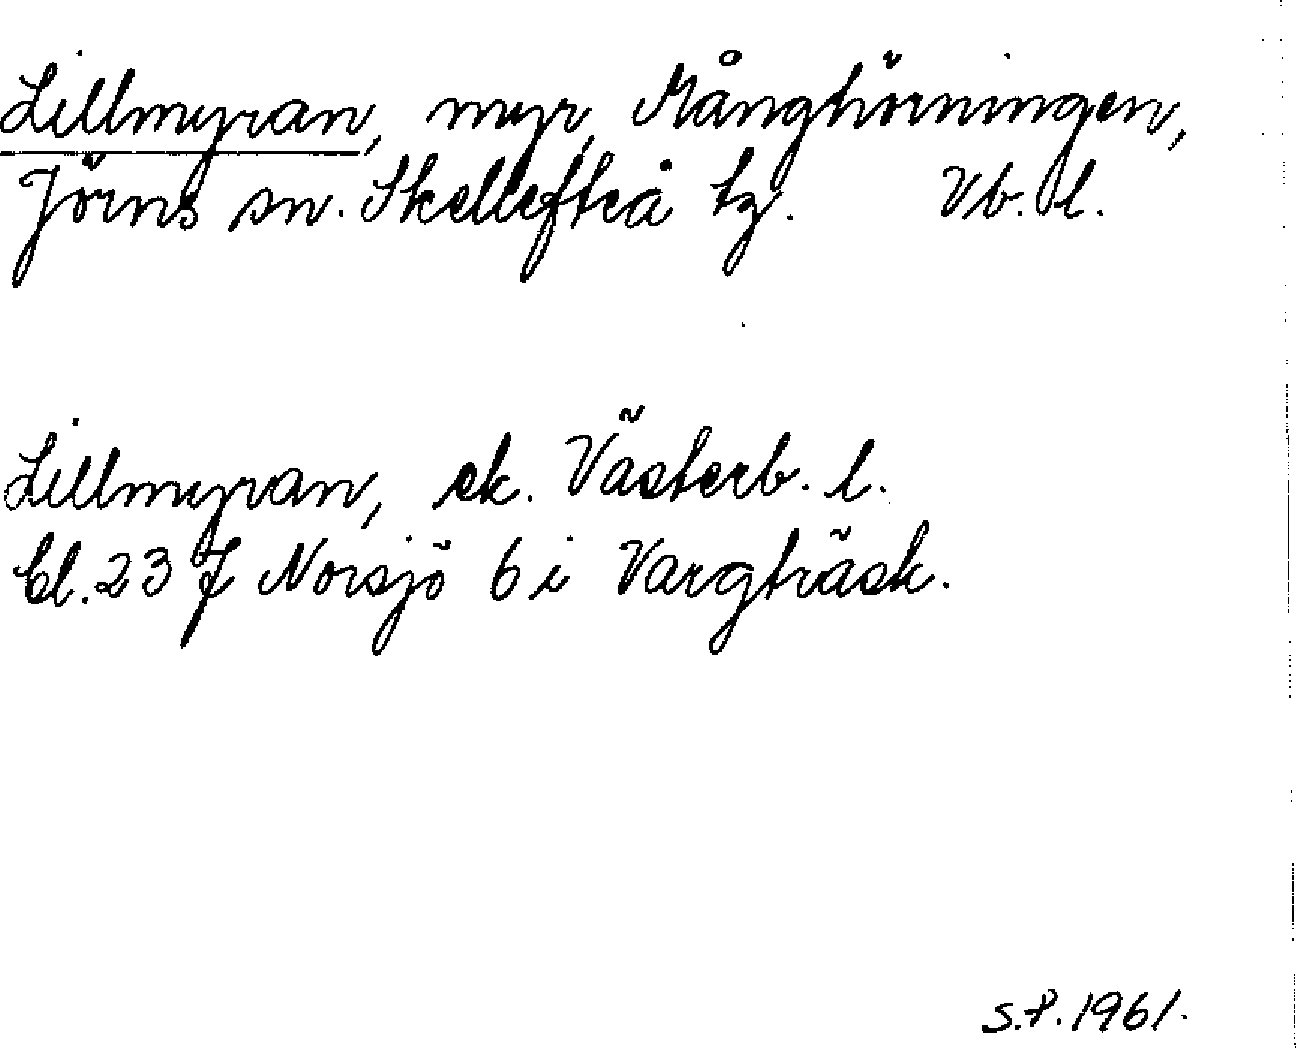 Lillmyran, myr, Månghörningen,
Jörns sn. Skellefteå tg. Vb. l.
Lillmyran, ek. Västerb. l.
bl. 23 J Norsjö 6 i Vargträsk.
S.P. 1961.